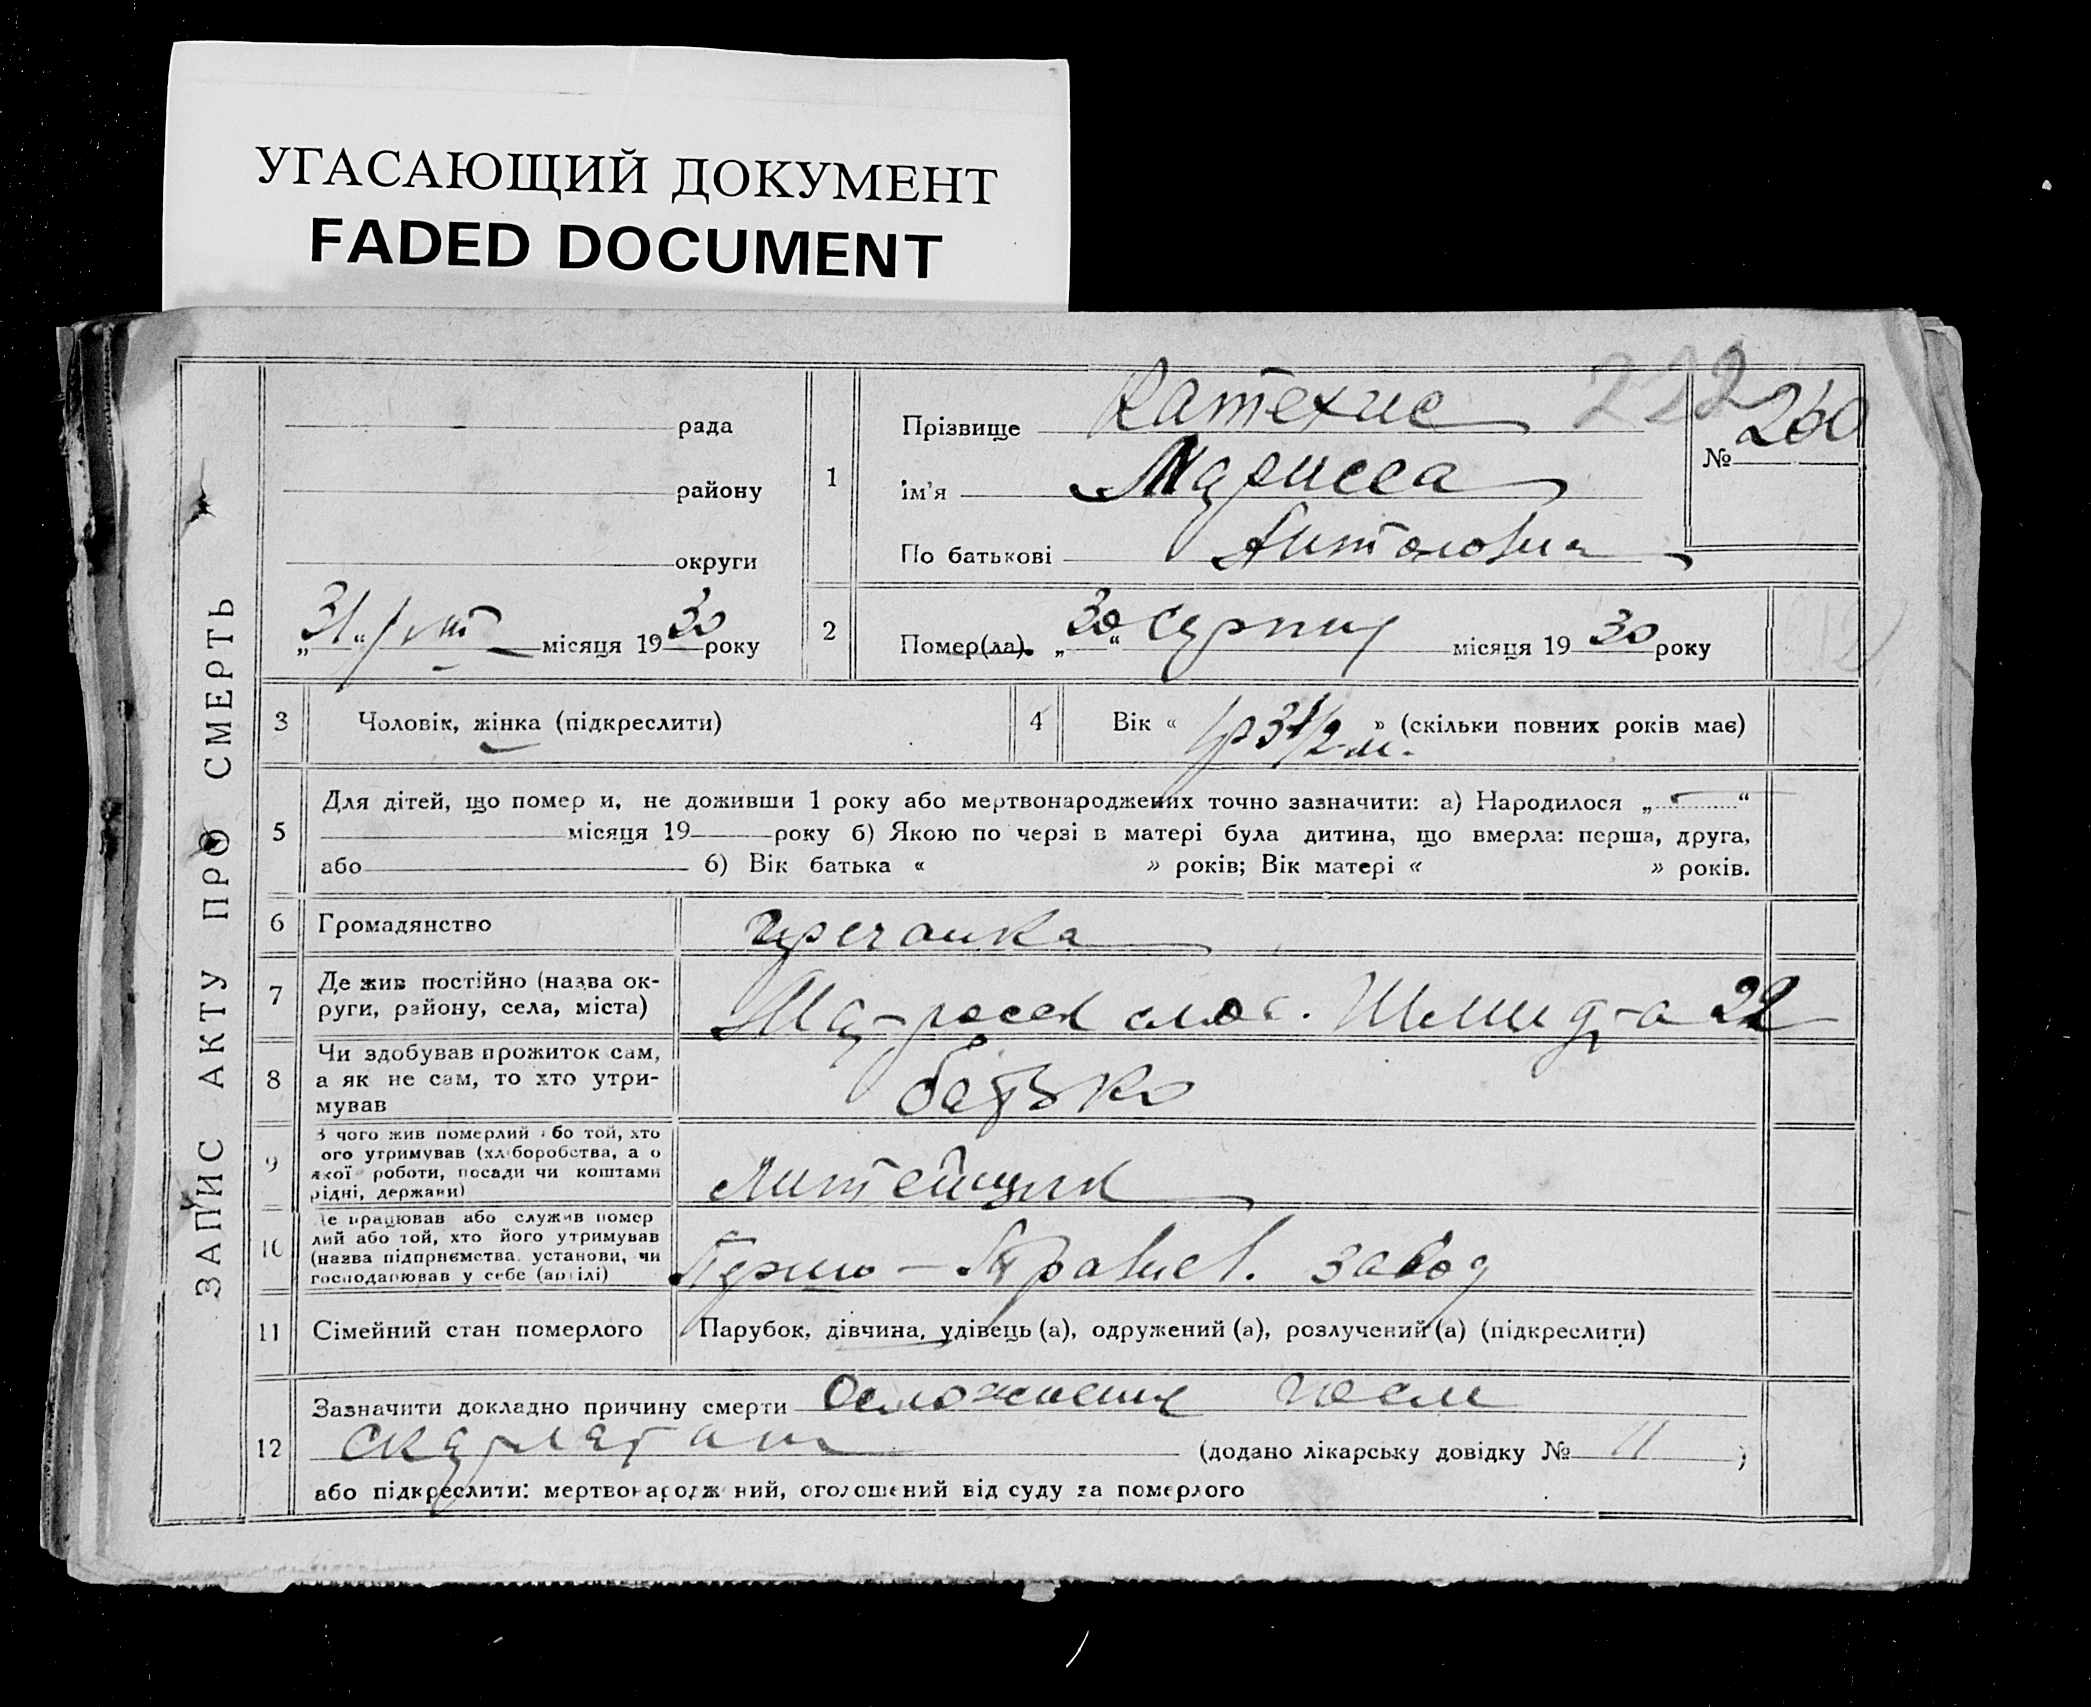 УГАСАЮЩИЙ ДОКУМЕНТ
FADED DOCUMENT
ЗАПИС АКТУ ПРО СМЕРТЬ
рада
району
округи
„31“ VIII місяця 1930 року
1
Прізвище Катехис
ім'я Марисса
По батькові Антоновна
222
№ 260
2
Помер(ла). „30“ серпня місяця 1930 року
3
Чоловік, жінка (підкреслити)
4
Вік « 1р 3 1/2 м. » (скільки повних років має)
5
Для дітей, що померли, не доживши 1 року або мертвонароджених точно зазначити: а) Народилося „ “
місяця 19 року б) Якою по черзі в матері була дитина, що вмерла: перша, друга,
або б) Вік батька « » років; Вік матері « » років.
6
Громадянство
гречанка
7
Де жив постійно (назва ок-
руги, району, села, міста)
слоб. Шмидта 22
8
Чи здобував прожиток сам,
а як не сам, то хто утри-
мував
батько
9
З чого жив померлий або той, хто
ого утримував (хліборобства, а о
якої роботи, посади чи коштами
рідні, держави)
Литейщик
10
Де працював або служив помер
лий або той, хто його утримував
(назва підприємства, установи, чи
господарював у себе (артілі)
завод
11
Сімейний стан померлого
Парубок, дівчина, удівець (а), одружений (а), розлучений (а) (підкреслити)
12
Зазначити докладно причину смерти Осложнения после
скарлатини (додано лікарську довідку № 11 )
або підкреслити: мертвонароджений, оголошений від суду за померлого